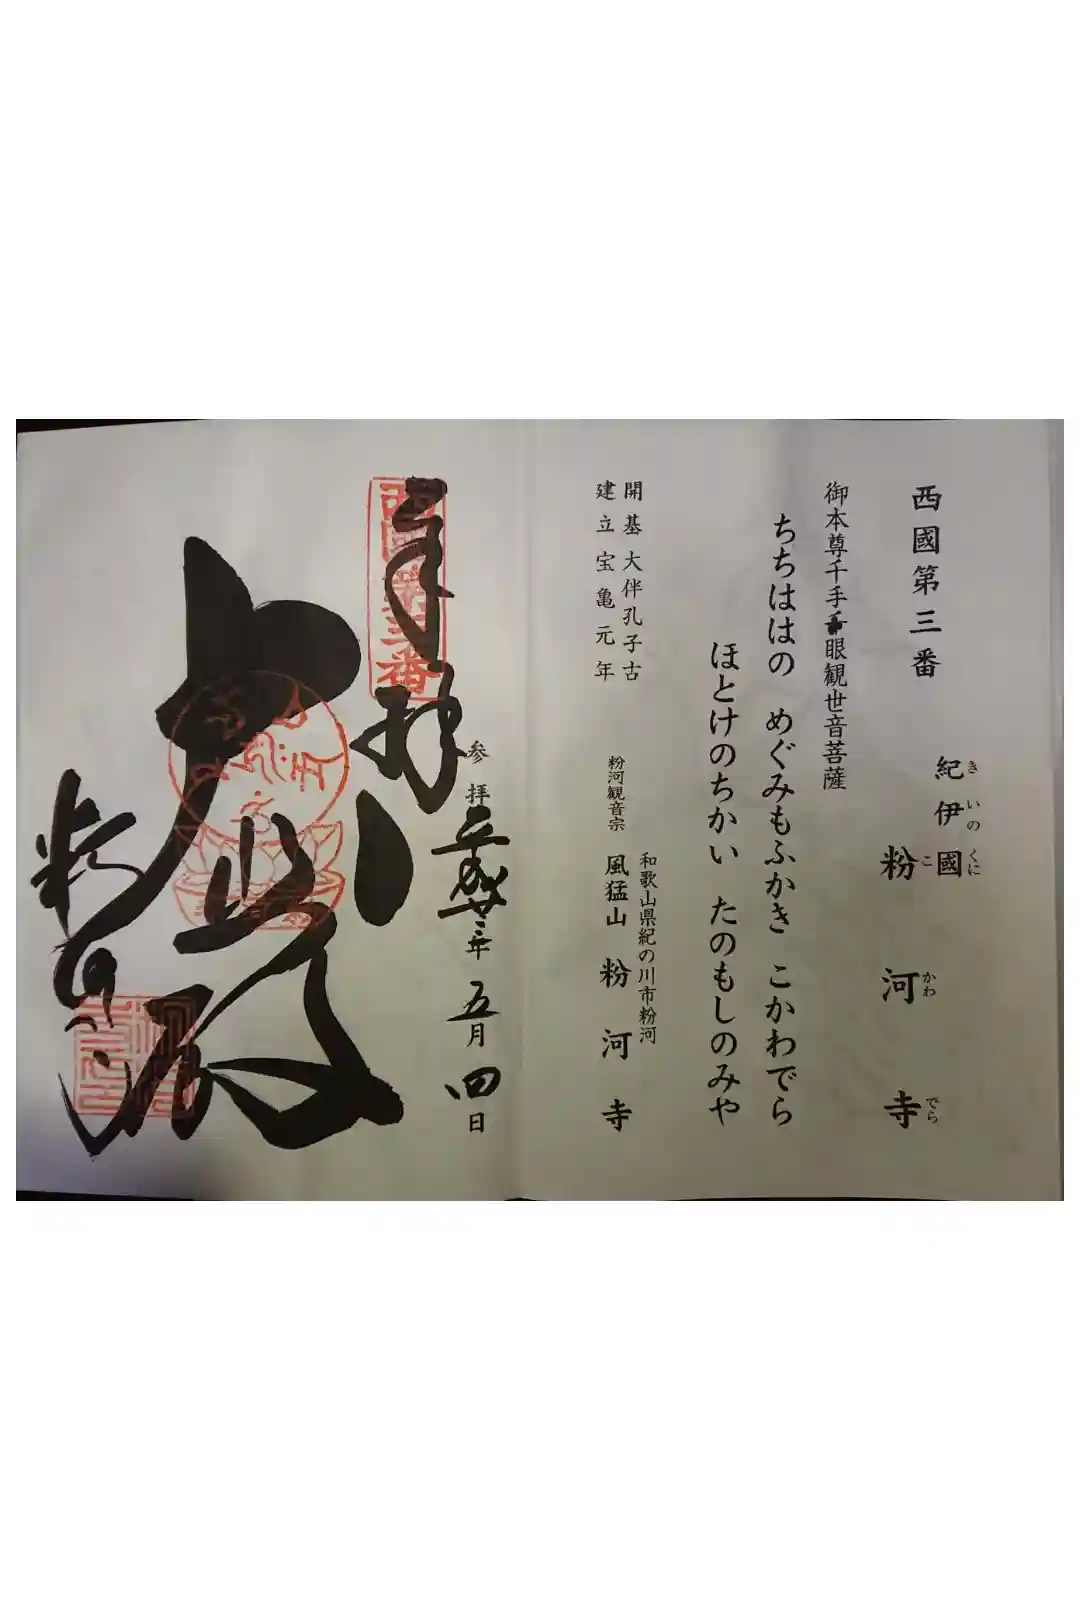 西國第三番
紀伊國
きいのくに
粉河寺
こかわでら
御本尊千手千眼観世音菩薩
ちちははの　めぐみもふかき　こかわでら
ほとけのちかい　たのもしのみや
開基 大伴孔子古
建立 宝亀元年
和歌山県紀の川市粉河
粉河観音宗　風猛山　粉河寺
参拝 平成廿三年 五月四日
奉拝
西国第三番
大悲殿
粉河寺